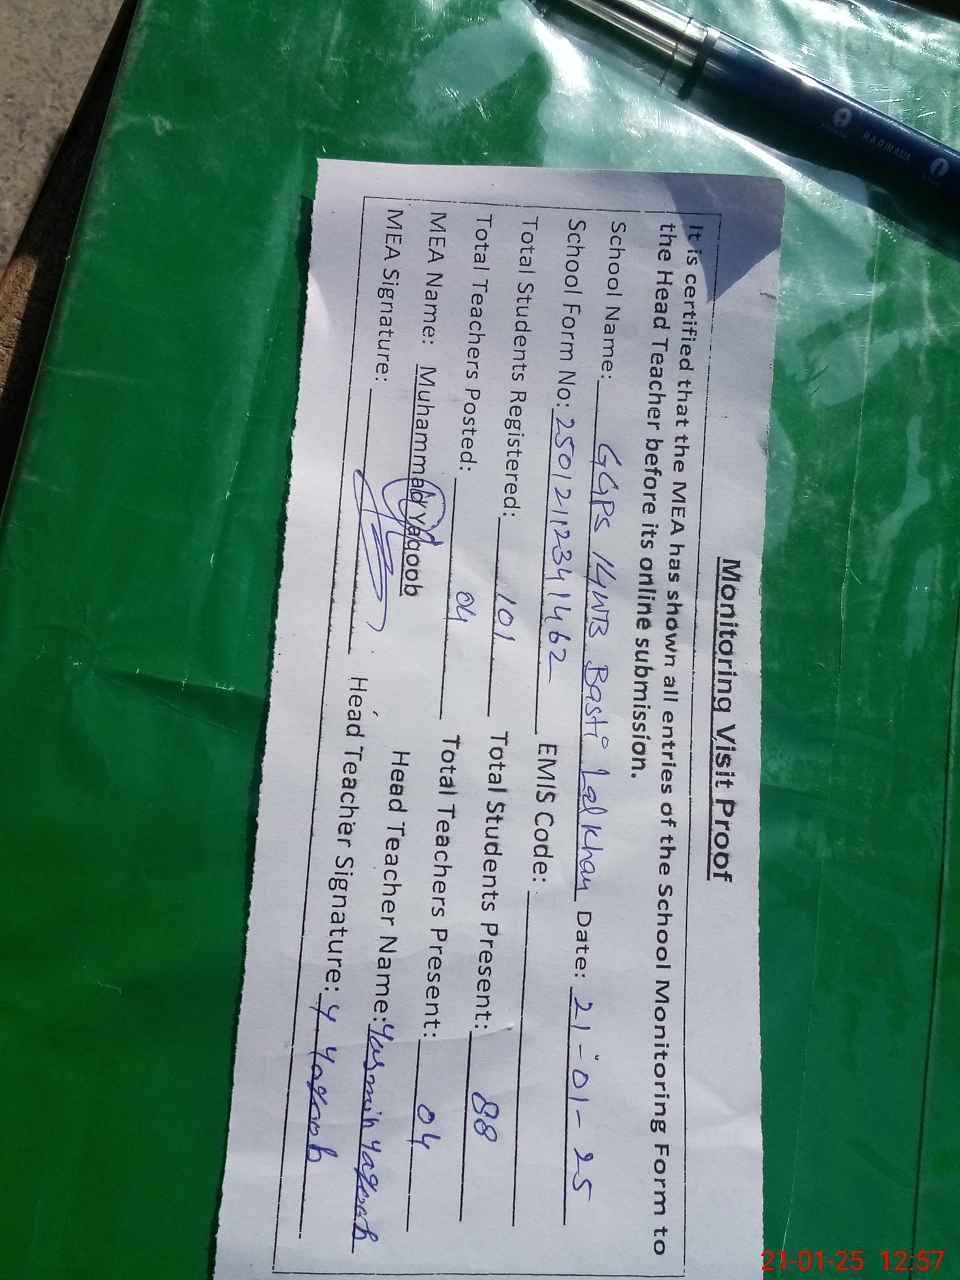 Monitoring Visit Proof
It is certified that the MEA has shown all entries of the School Monitoring Form to
the Head Teacher before its online submission.
School Name: GGPS 14WB Basti Lal Khan Date: 21-01-25
School Form No: 25012112341462 EMIS Code:
Total Students Registered: 101 Total Students Present: 88
Total Teachers Posted: 04 Total Teachers Present: 04
MEA Name: Muhammad Yaqoob Head Teacher Name: Yasmin Yaqoob
MEA Signature: Head Teacher Signature: Y Yaqoob
21-01-25 12:57